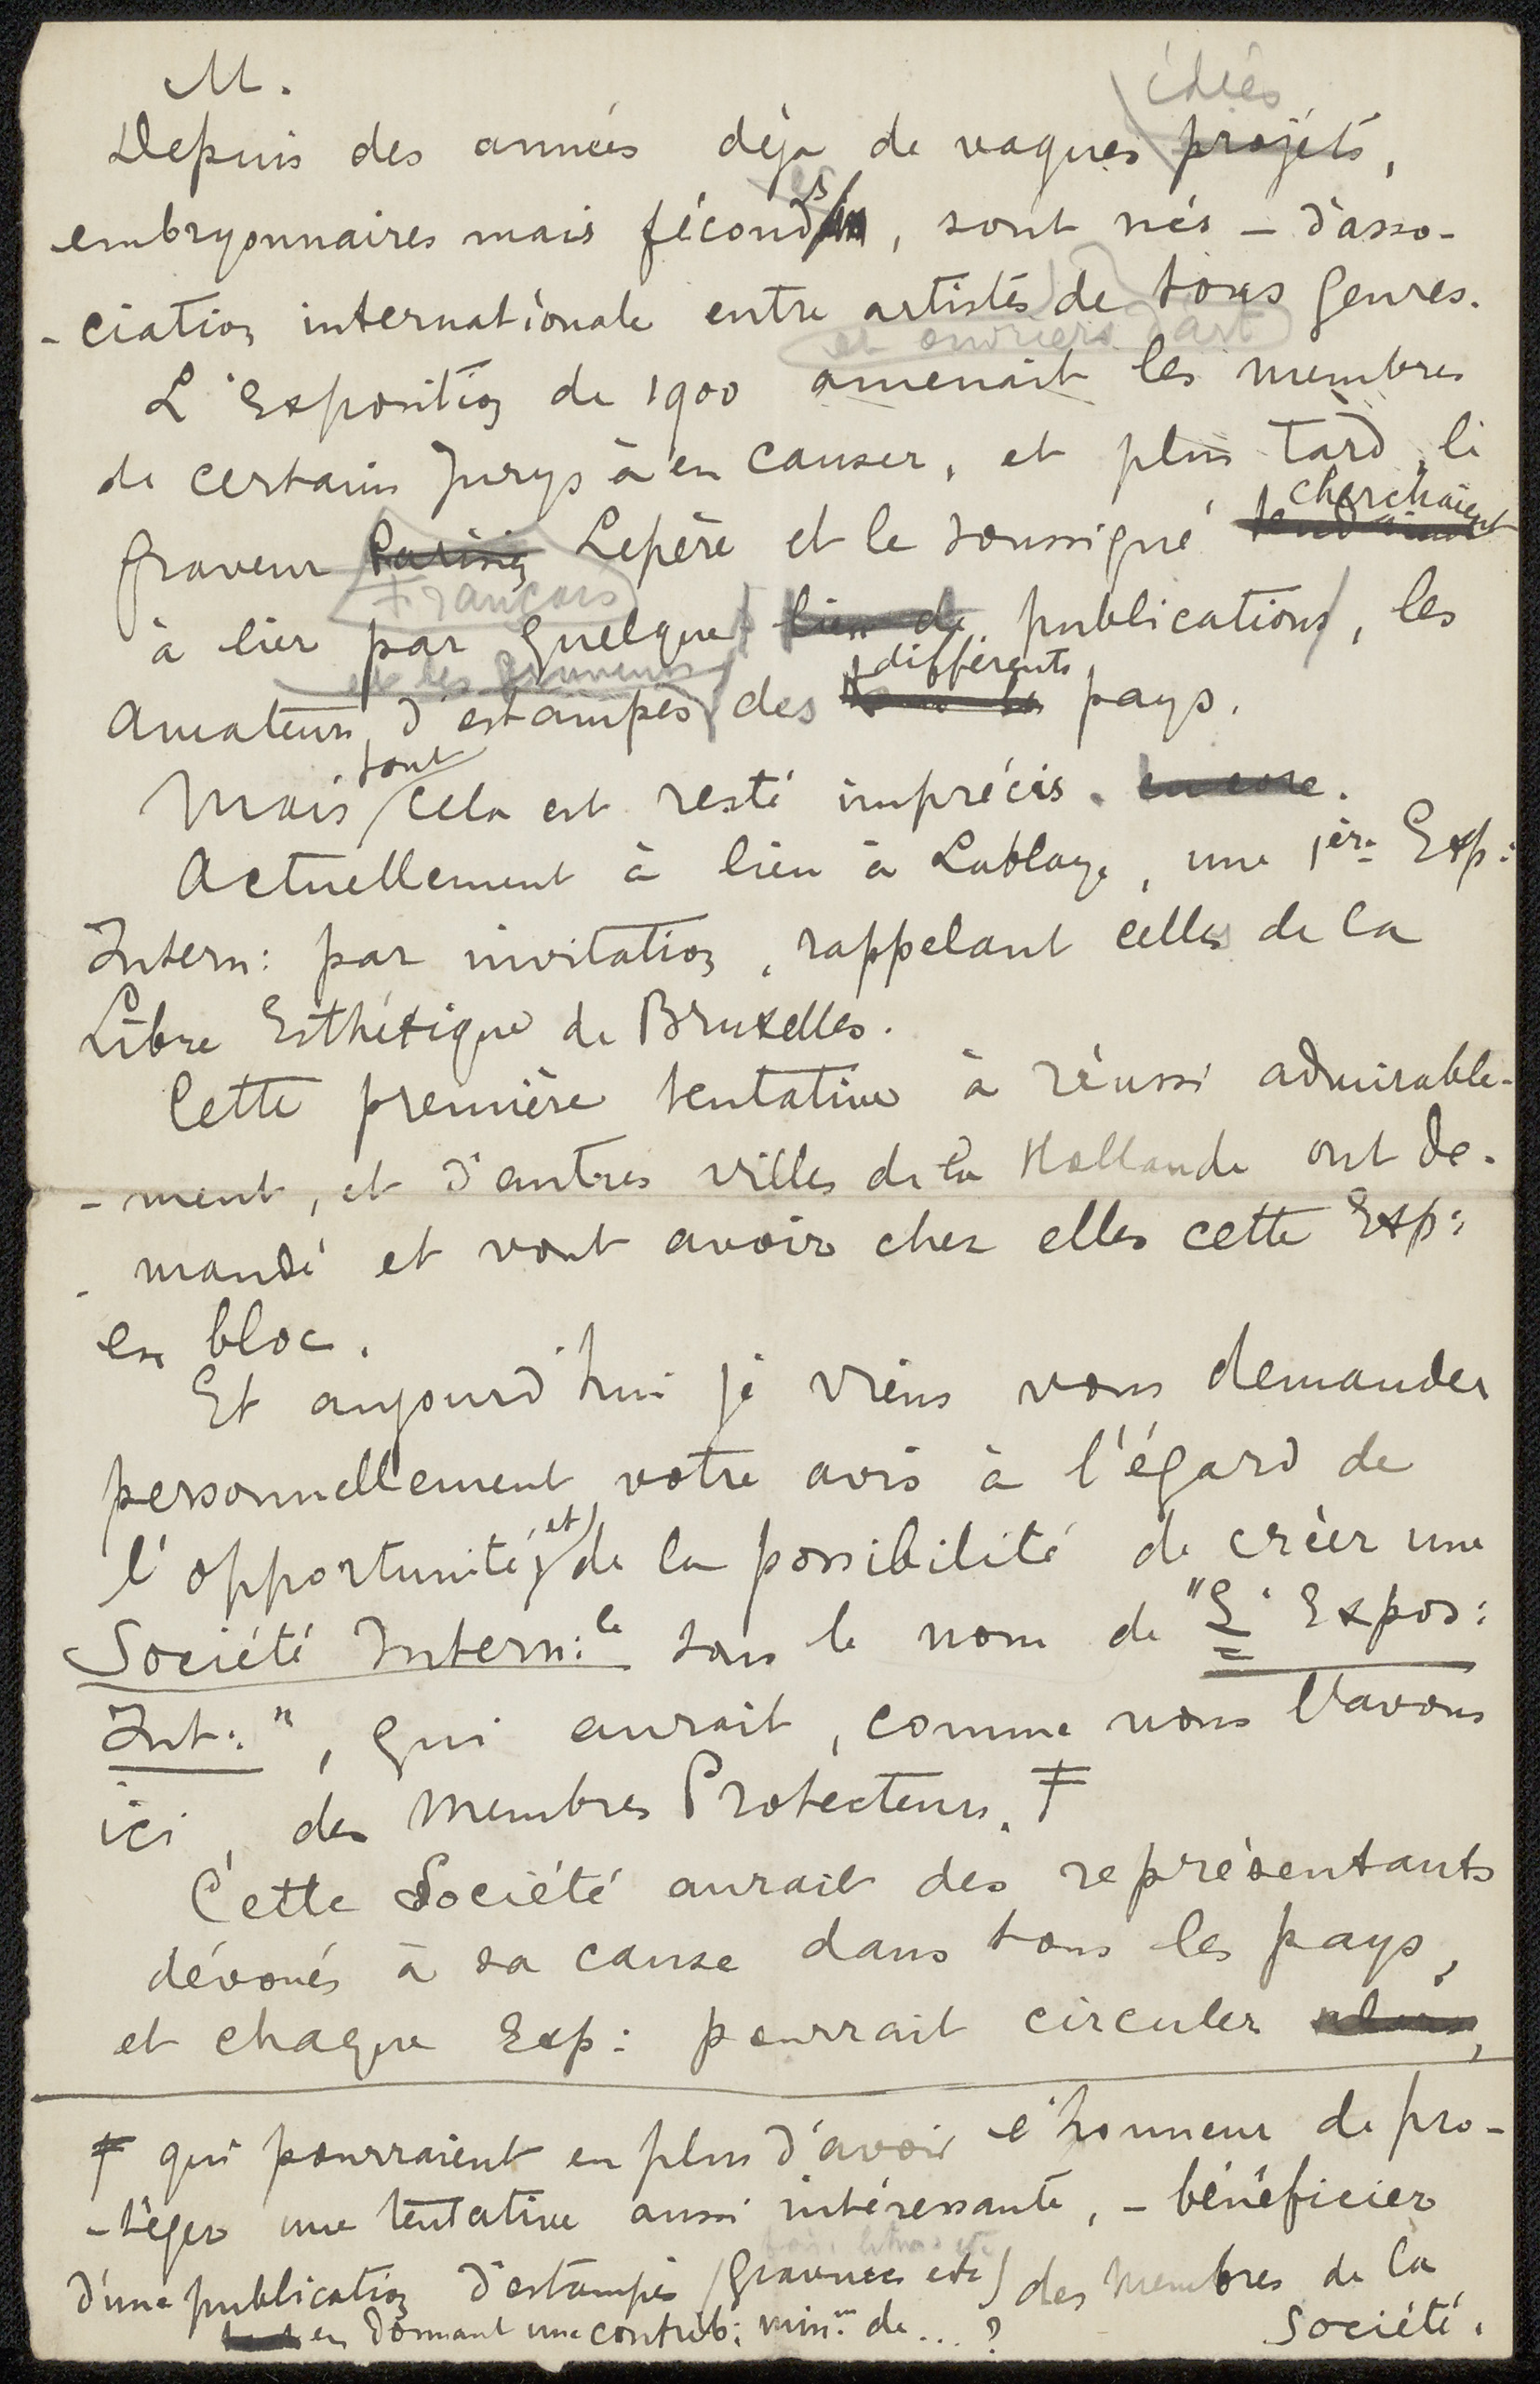 M.
idées
Depuis des années déja de vagues projets,
es
embryonnaires mais féconds, sont nés – d'asso-
-ciation internationale entre artistes de tous genres.
et ouvriers d'art
L'Exposition de 1900 amenait les membres
de certains Jurys à en causer, et plus tard, le
cherchaient
graveur Parisien Lepère et le soussigné tendaient
Français
à lier par quelque lien de publications, les
et les graveurs différents
amateurs d'estampes des pays.
tout
Mais cela est resté imprécis. encore.
Actuellement à lieu à Lablaye, une 1ère Exp:
Intern: par invitation, rappelant celles de la
Libre Esthétique de Bruxelles.
Cette première tentative à réussi admirable-
-ment, et d'autres villes de la Hollande ont de-
-mandé et vont avoir chez elles cette Exp:
en bloc.
Et aujourd'hui je viens vous demander
personnellement votre avis à l'égard de
l'opportunité, et de la possibilité de créer une
Société Intern:le sous le nom de "L'Expos:
Int:", qui aurait, comme nous l'avons
ici, des Membres Protecteurs. ‡
Cette Société aurait des représentants
dévoués à sa cause dans tous les pays,
et chaque Exp: pourrait circuler alors,
‡ qui pourraient en plus d'avoir l'honneur de pro-
-téger une tentative aussi intéressante, – bénéficier
d'une publication d'estampes (gravures etc) des membres de la
en donnant une contrib: min:m de ... ? Société.